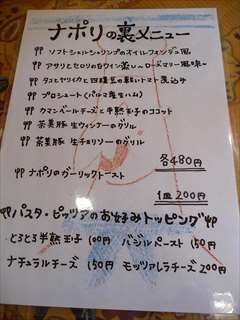 ナポリの裏メニュー
ソフトシェルシュリンプのオイルフォンデュ風
アサリとセロリの白ワイン蒸し〜ローズマリー風味〜
タコとヤリイカと四種豆の軽いトマト煮込み
プロシュート(パルマ産生ハム)
カマンベールチーズと半熟玉子のココット
茶美豚 生ウィンナーのグリル
茶美豚 生チョリソーのグリル
各480円
ナポリのガーリックトースト
1皿 200円
パスタ・ピッツァのお好みトッピング
とろとろ半熟玉子 100円 バジルペースト 150円
ナチュラルチーズ 150円 モッツァレラチーズ 200円